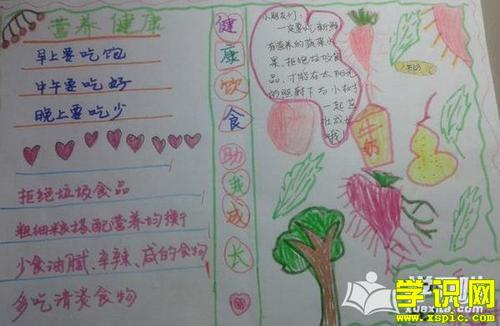 营养健康
早上要吃饱
中午要吃好
晚上要吃少
拒绝垃圾食品
粗细粮搭配营养均衡
少食油腻、辛辣、咸的食物
多吃清淡食物
健康饮食助我成长
小朋友们:
一定要吃新鲜
有营养的蔬菜水
果、拒绝垃圾食
品,才能在太阳光
的照射下与小树
一起茁
壮成长
牛奶
学识网
www.xspic.com